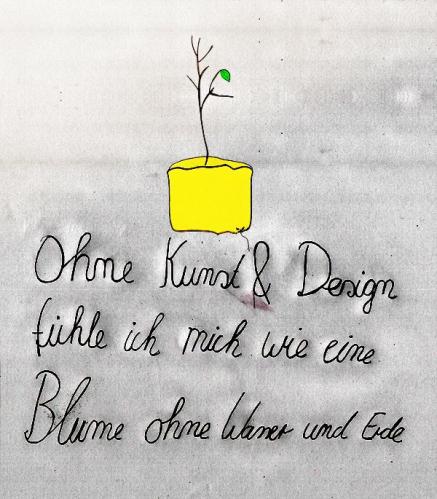 Ohne Kunst & Design
fühle ich mich wie eine
Blume ohne Wasser und Erde